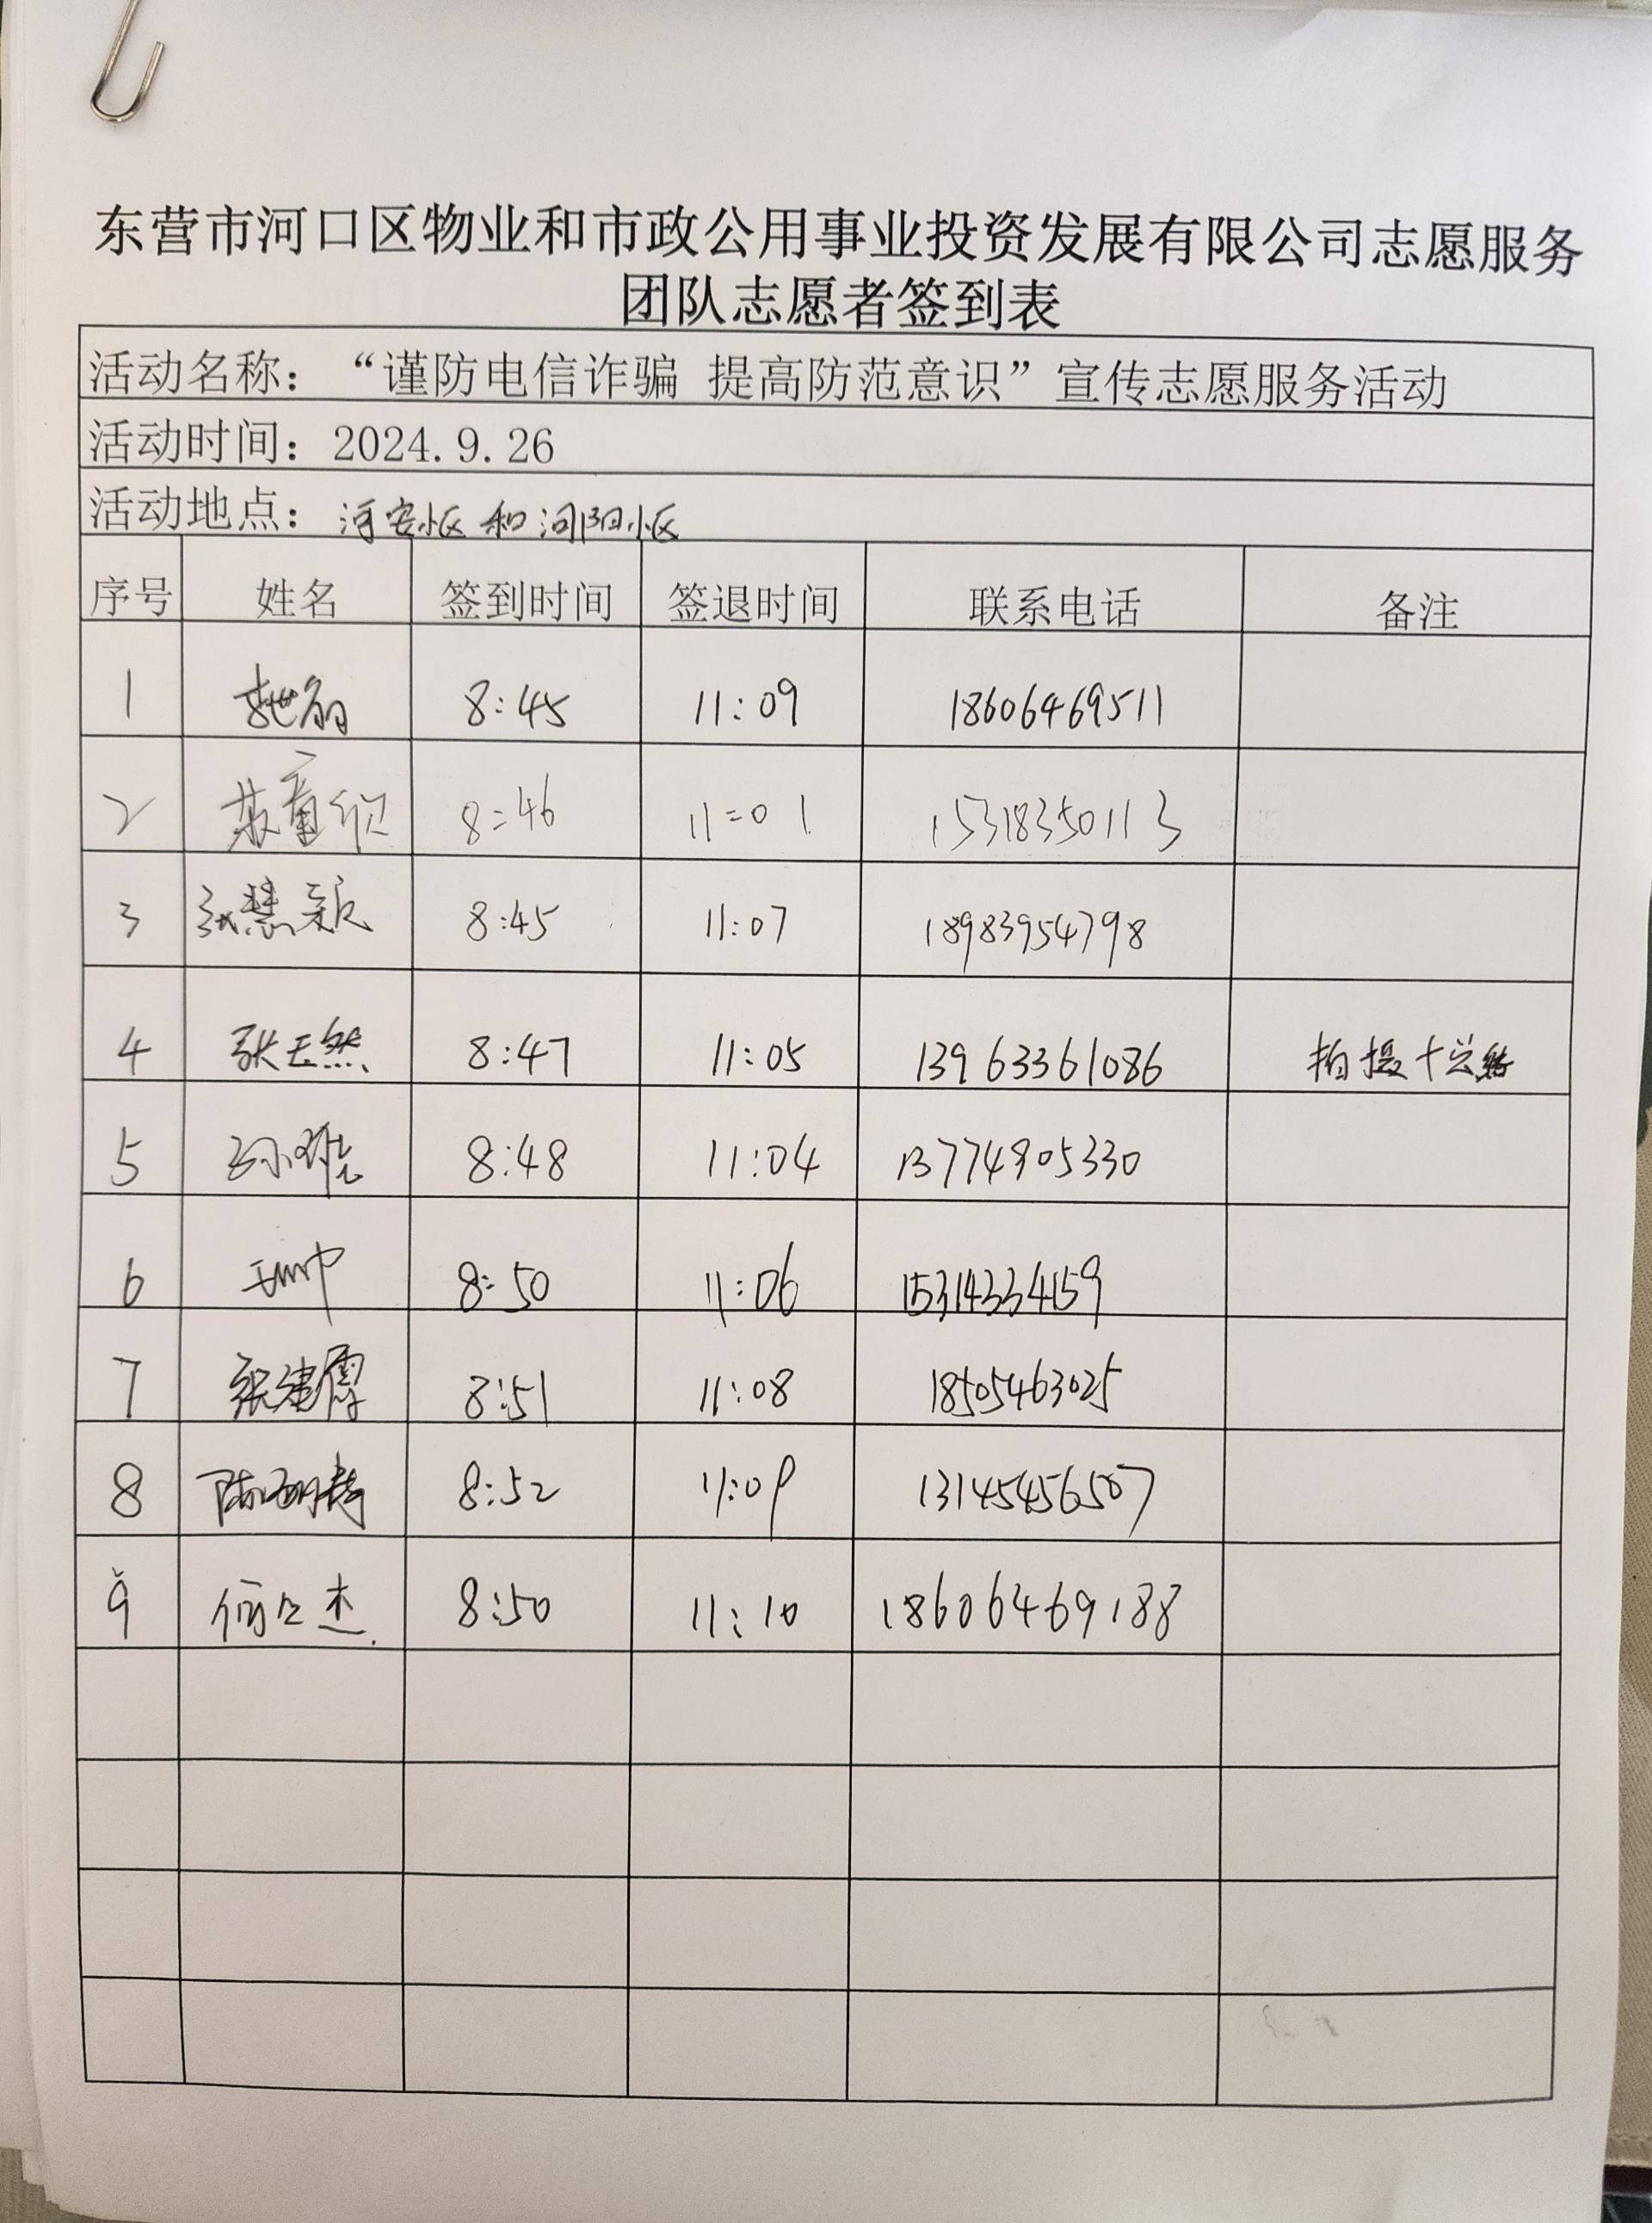 东营市河口区物业和市政公用事业投资发展有限公司志愿服务
团队志愿者签到表
活动名称：“谨防电信诈骗 提高防范意识”宣传志愿服务活动
活动时间：2024.9.26
活动地点：河安小区和河阳小区
序号 姓名 签到时间 签退时间 联系电话 备注
1 8:45 11:09 18606469511
2 8:46 11:01 15318350113
3 张慧颖 8:45 11:07 18983954798
4 张天然 8:47 11:05 13963361086 拍摄+总结
5 8:48 11:04 13774905330
6 8:50 11:06 15314334159
7 张建霞 8:51 11:08 18505463025
8 8:52 11:09 13145456507
9 8:50 11:10 18606469188